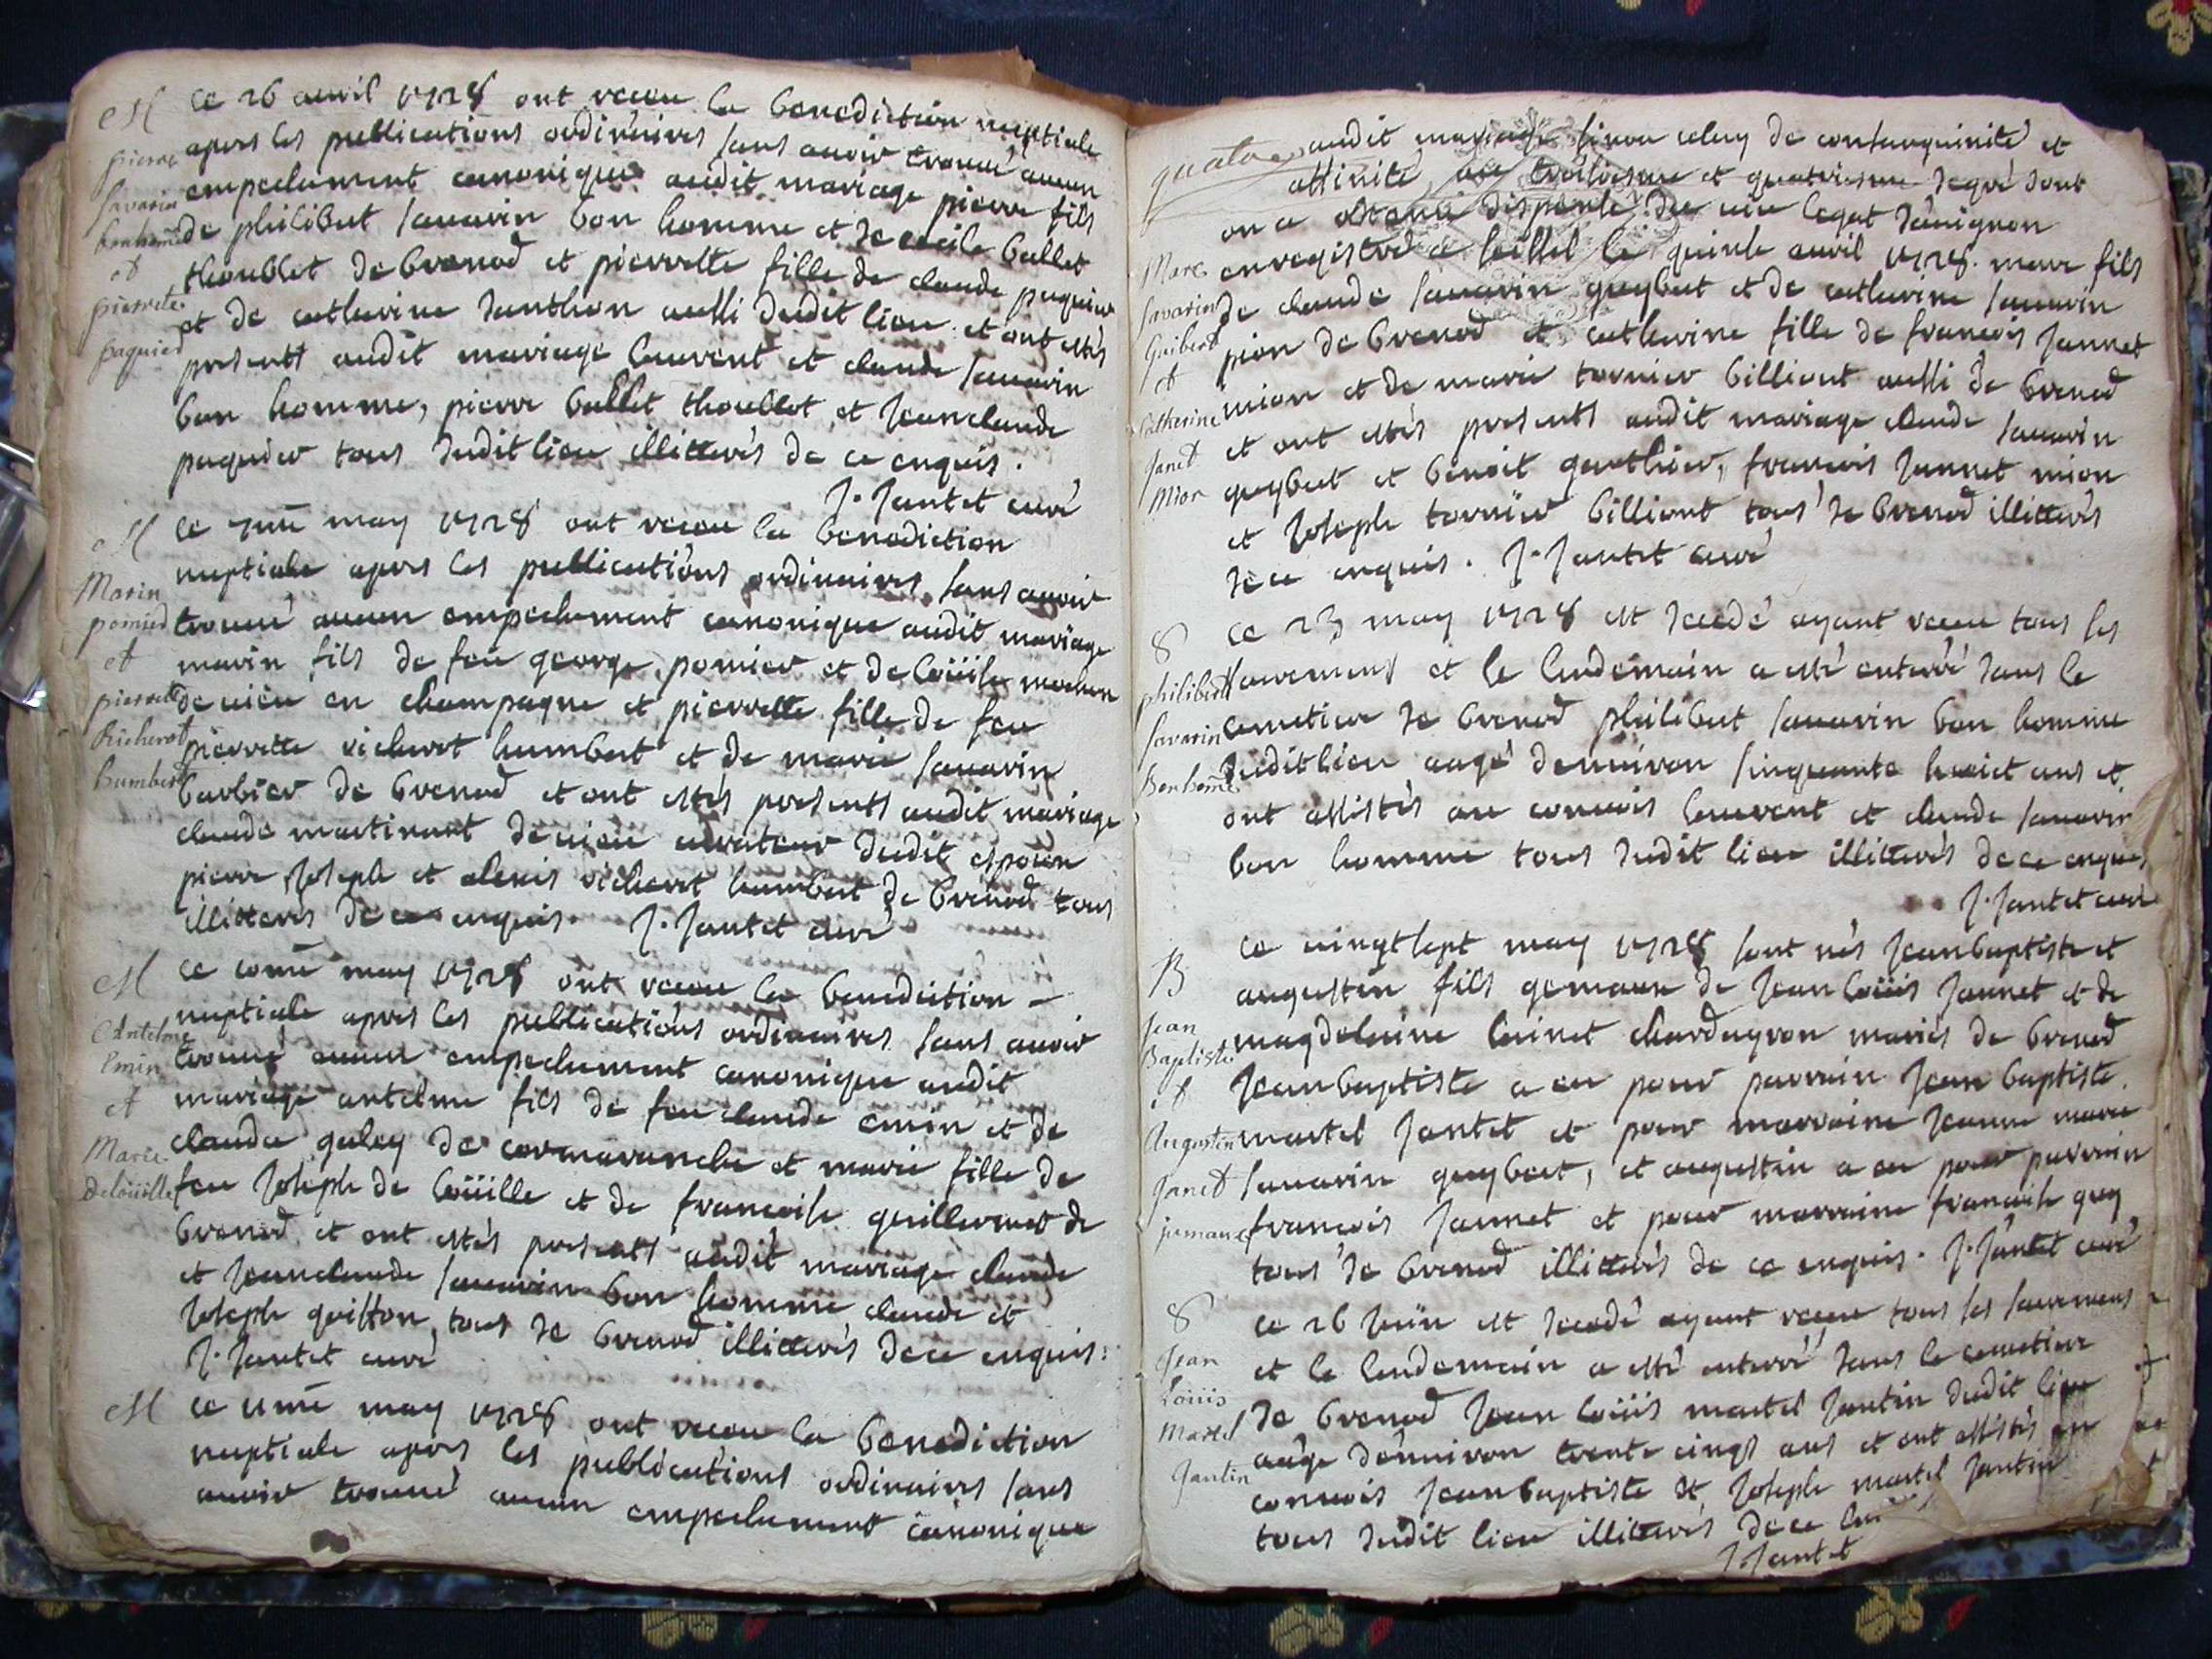 M
pierre
Savarin
bonhome
et
pierrete
paquied
ce 26 avril 1728 ont receu la benediction nuptiale
apres les publications ordinaires sans avoir trouvé aucun
empechement canonique audit mariage pierre fils
de philibert savarin bon homme et de cecile ballet
thoublet de brenod et pierrette fille de claude paquier
et de catherine Janthon aussi dudit lieu et ont estés
presents audit mariage laurent et claude savarin
bon homme, pierre ballet thoublet et Jeanclaude
paquier tous dudit lieu illitterés de ce enquis.
J. Jantet curé
M
Marin
pomied
et
pierrette
Richerot
humbert
ce 7me may 1728 ont receu la benediction
nuptiale apres les publications ordinaires sans avoir
trouvé aucun empechement canonique audit mariage
marin fils de feu george pomier et de loüise
de vieu en champagne et pierrette fille de feu
pierrette richerot humbert et de marie savarin
barbier de brenod et ont estés presents audit mariage
claude martinant de vieu curateur dudit espoux
pierre Joseph et alexis richerot humbert de brenod tous
illitterés de ce enquis. J. Jantet curé
M
Antelme
Emin
et
Marie
deloüille
ce 10me may 1728 ont receu la benediction
nuptiale apres les publications ordinaires sans avoir
trouvé aucun empechement canonique audit
mariage antelme fils de feu claude emin et de
claudie galey de cormaranche et marie fille de
feu Joseph de loüille et de francoise guillermet de
brenod et ont estés presents audit mariage claude
et Jeanclaude savarin bon homme claude et
Joseph guitton, tous de brenod illitterés de ce enquis.
J. Jantet curé
M
ce 11me may 1728 ont receu la benediction
nuptiale apres les publications ordinaires sans
avoir trouvé aucun empechement canonique
quatre
Marc
Savarin
Guibert
et
Catherine
Janet
Mion
audit mariage sinon celuy de consanguinité et
affinité au troisiesme et quatriesme degré dont
on a obtenu dispense du vice legat d'avignon
enregistrée a seissel le quinse avril 1728. marc fils
de claude savarin guybert et de catherine savarin
pion de brenod et catherine fille de francois Jannet
mion et de marie tornier billiont aussi de brenod
et ont estés presents audit mariage claude savarin
guybert et benoit gauthier, francois Jannet mion
et Joseph tornier billiont tous de brenod illitterés
de ce enquis. J. Jantet curé
S
philibert
Savarin
Bonhome
ce 23 may 1728 est decedé ayant receu tous les
sacremens et le lendemain a esté enterré dans le
cemetiere de brenod philibert savarin bon homme
dudit lieu aagé d'environ sinquante huict ans et
ont assistés au convois laurent et claude savarin
bon homme tous dudit lieu illitterés de ce enquis
J. Jantet curé
B
Jean
Baptiste
et
Augustin
Janet
jumaux
ce vingtsept may 1728 sont nés Jeanbaptiste et
augustin fils gemaux de Jean loüis Jannet et de
magdelaine lainet chardeyron mariés de brenod
Jeanbaptiste a eu pour parrain Jean baptiste
martel Jantet et pour marraine Jeanne marie
savarin guybert, et augustin a eu pour parrain
francois Jannet et pour marraine francoise guy
tous de brenod illitterés de ce enquis. J. Jantet curé
S
Jean
Loüis
Martel
Jantin
ce 26 Juin est decedé ayant receu tous les sacremens
et le lendemain a esté enterré dans le cemetiere
de brenod Jean loüis martel Jantin dudit lieu
aagé d'environ trente cinqs ans et ont assistés au
convois Jeanbaptiste et Joseph martel Jantin
tous dudit lieu illitterés de ce
J. Jantet